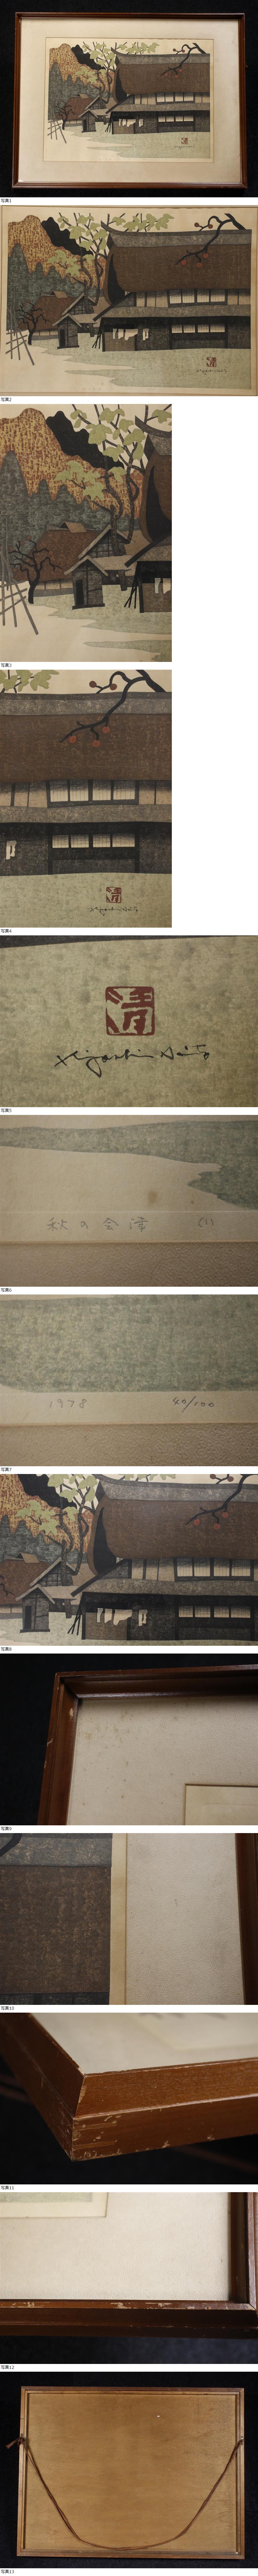 写真1
写真2
写真3
写真4
清
Kiyoshi Saitō
写真5
秋の会津 (L)
写真6
1978 40/100
写真7
写真8
写真9
写真10
写真11
写真12
写真13